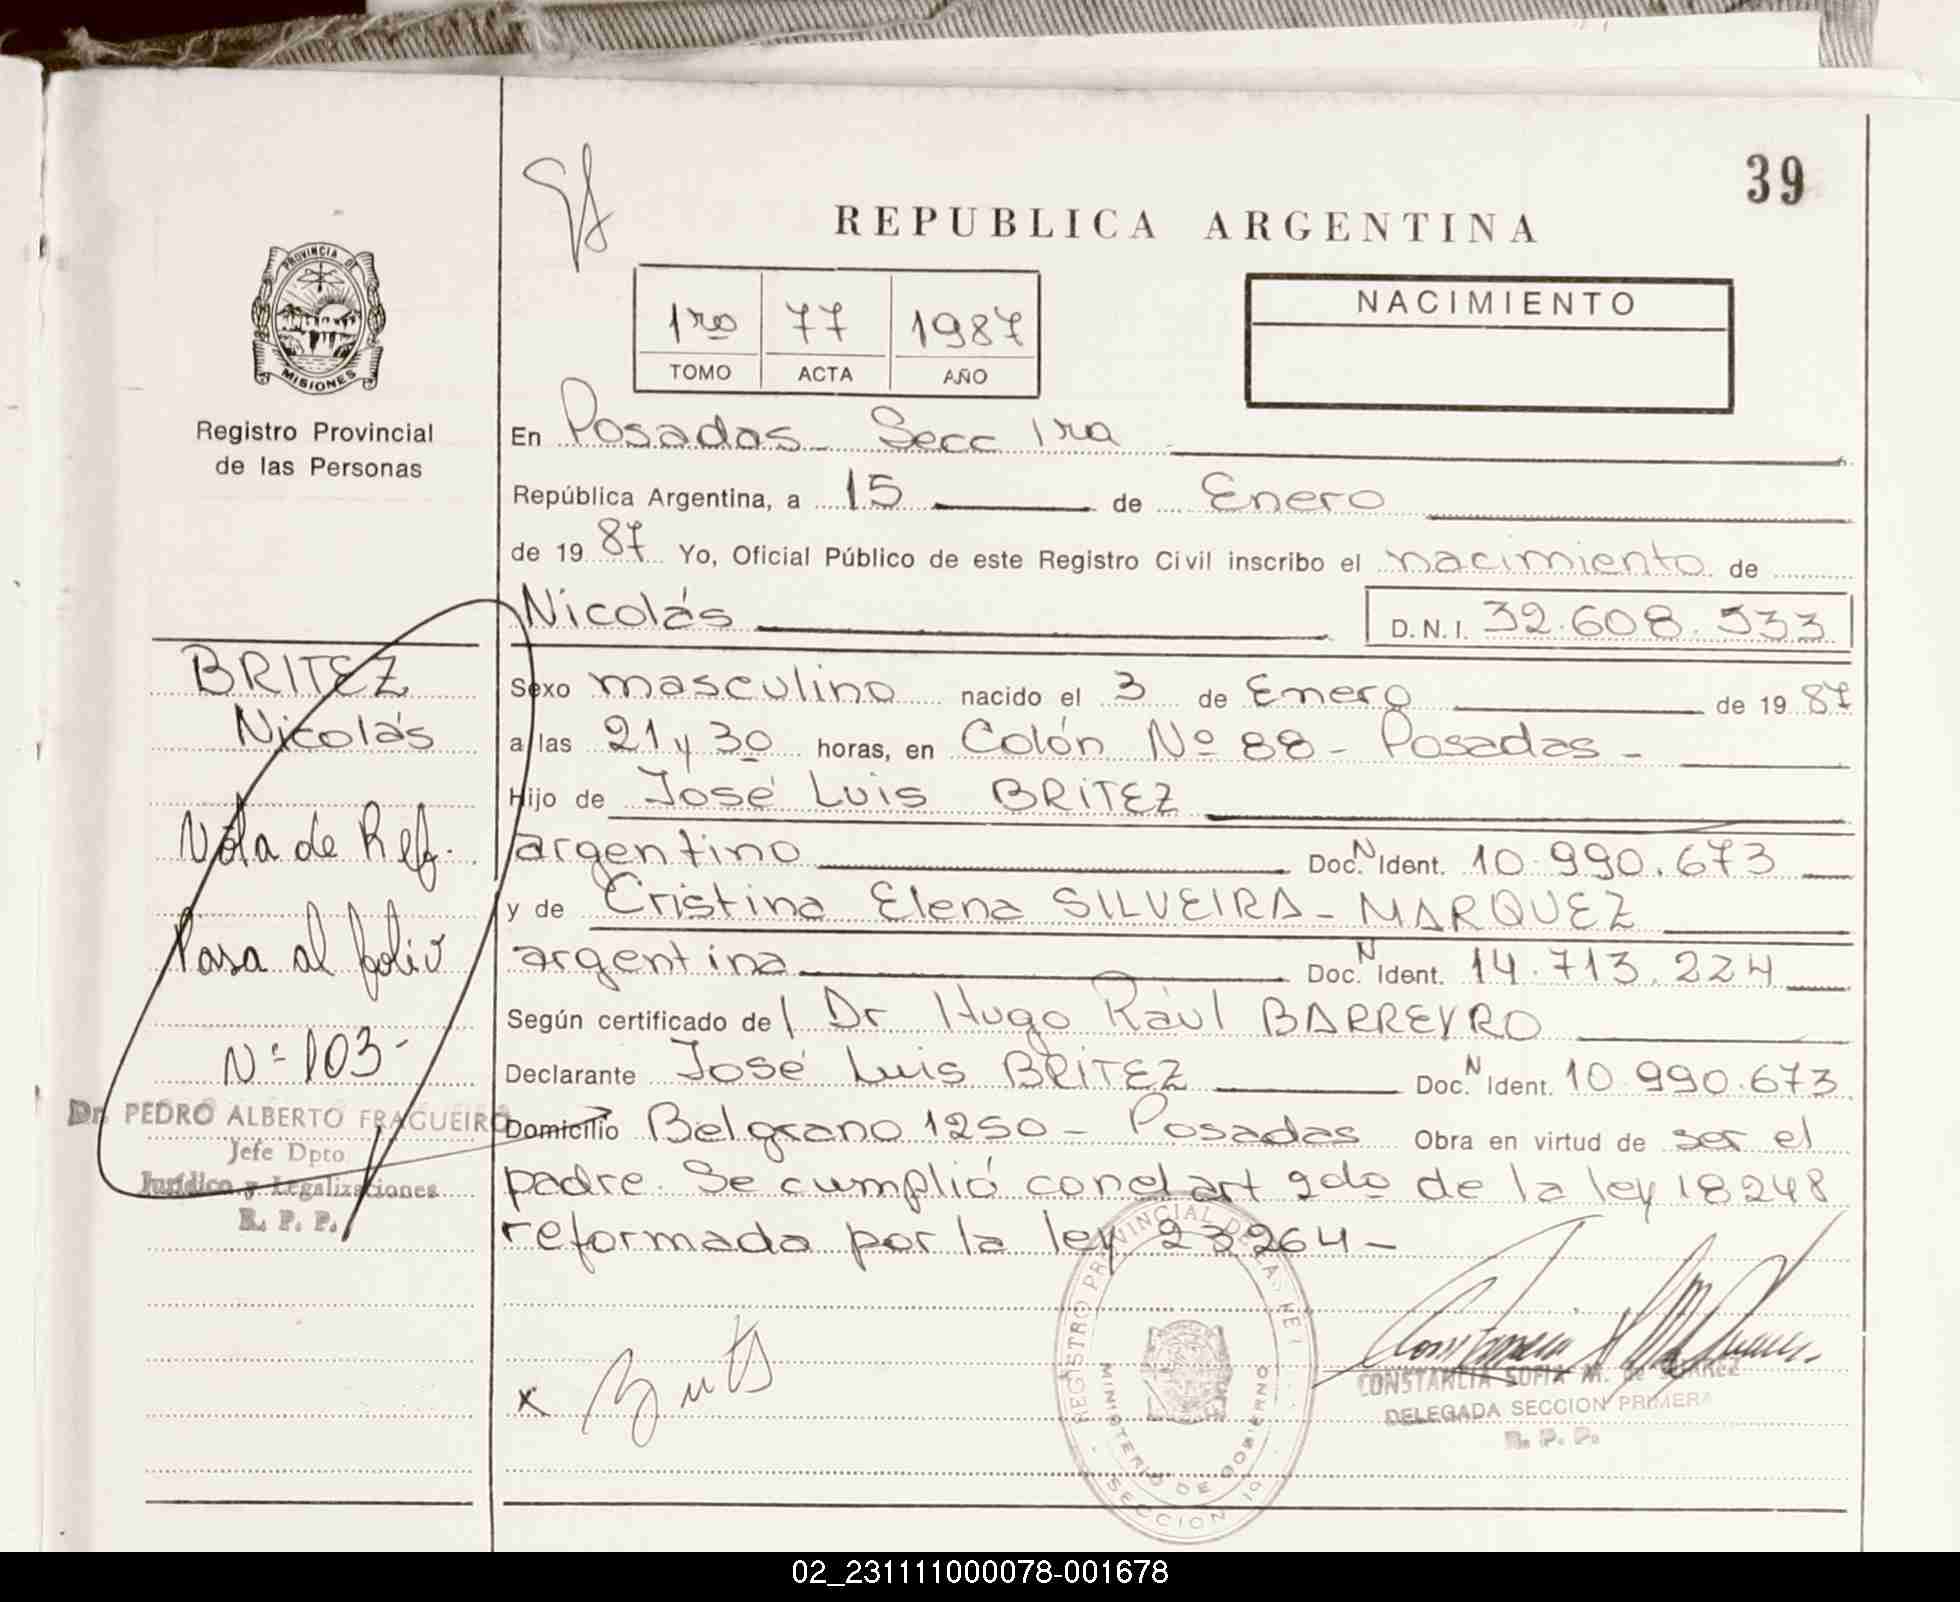 39
REPUBLICA ARGENTINA
PROVINCIA DE
MISIONES
Registro Provincial
de las Personas
1ro 77 1987
TOMO ACTA AÑO
NACIMIENTO
En Posadas - Secc 1ra
República Argentina, a 15 de Enero
de 19 87 Yo, Oficial Público de este Registro Civil inscribo el nacimiento de
Nicolás D.N.I. 32.608.533
Sexo masculino nacido el 3 de Enero de 19 87
a las 21 y 30 horas, en Colón Nº 88 - Posadas -
Hijo de José Luis BRITEZ
argentino Doc. N Ident. 10.990.673
y de Cristina Elena SILVEIRA - MARQUEZ
argentina Doc. N Ident. 14.713.224
Según certificado del Dr Hugo Raúl BARREYRO
Declarante José Luis BRITEZ Doc. N Ident. 10.990.673
Domicilio Belgrano 1250 - Posadas Obra en virtud de ser el
padre. Se cumplió con el art 2do de la ley 18248
reformada por la ley 23264 -
BRITEZ
Nicolás
Nota de Ref.
Pasa al folio
Nº 103 -
Dr. PEDRO ALBERTO FRAGUEIRO
Jefe Dpto
Jurídico y Legalizaciones
R. P. P.
x
REGISTRO PROVINCIAL DE LAS
MINISTERIO DE GOBIERNO
SECCION 1º
CONSTANCIA SOFIA M. de SUAREZ
DELEGADA SECCION PRIMERA
R. P. P.
02_231111000078-001678